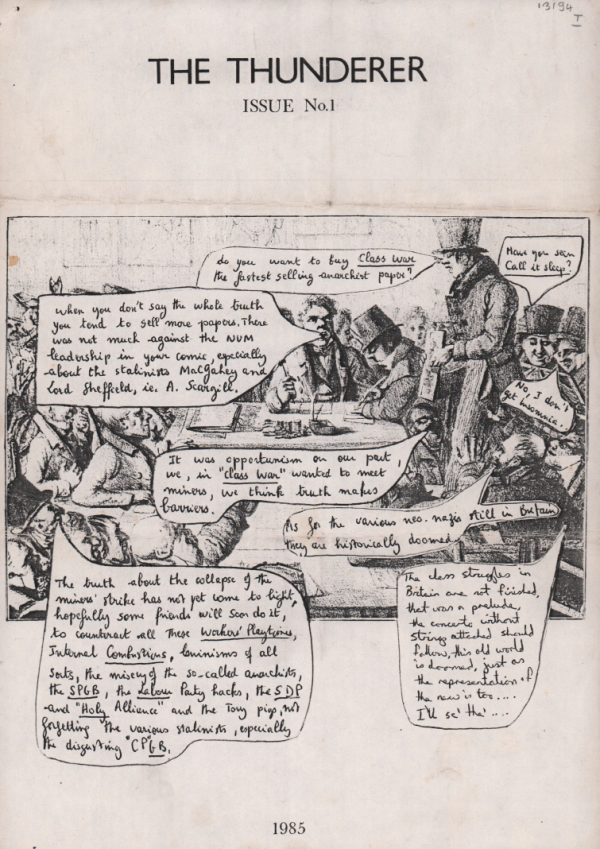 13/94
I
THE THUNDERER
ISSUE No.1
do you want to buy Class War
the fastest selling anarchist paper?
Have you seen
Call it sleep?
When you don't say the whole truth
you tend to sell more papers. There
was not much against the NUM
leadership in your comic, especially
about the stalinists MacGahey and
Lord Sheffield, i.e. A. Scargill.
No, I don't
get insomnia.
It was opportunism on our part,
we, in "Class War" wanted to meet
miners, we think truth makes
barriers.
As for the various neo-nazis still in Britain
they are historically doomed
The truth about the collapse of the
miners' strike has not yet come to light,
hopefully some friends will soon do it,
to counteract all these Workers' Playtimes,
Internal Combustions, Leninisms of all
sorts, the misery of the so-called anarchists,
the SPGB, the Labour Party hacks, the SDP
and "Holy Alliance" and the Tory pigs, not
forgetting the various stalinists, especially
the disgusting "CPGB.
The class struggles in
Britain are not finished,
that was a prelude,
the concerto without
strings attached should
follow, this old world
is doomed, just as
the representation of
the new is too....
I'll se' tha'....
1985